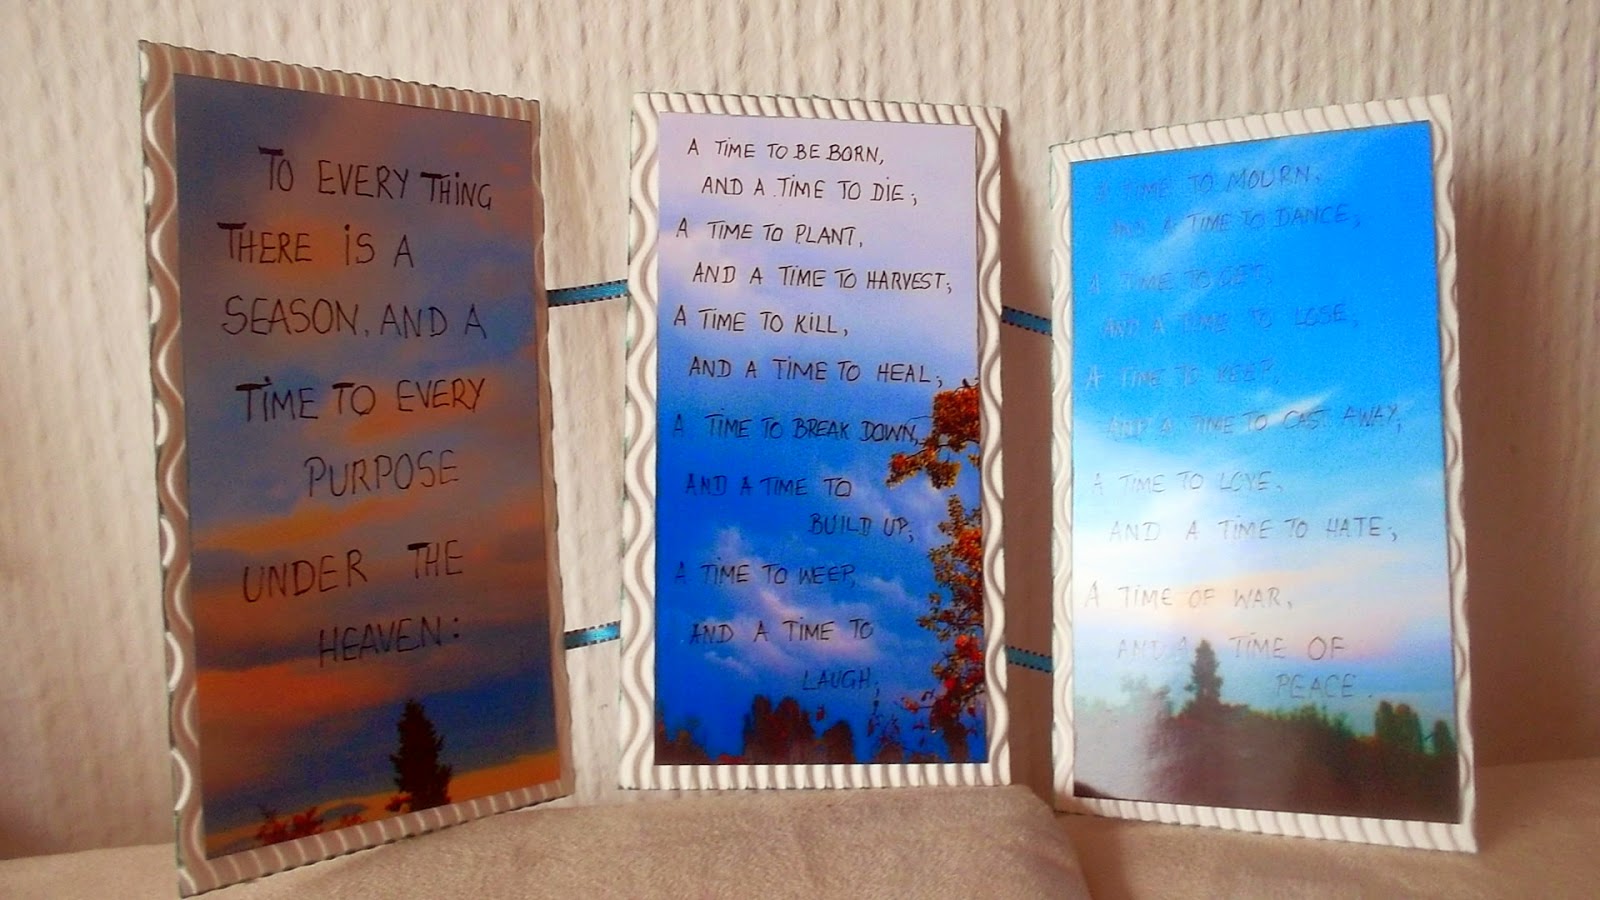 TO EVERY THING
THERE IS A
SEASON, AND A
TIME TO EVERY
PURPOSE
UNDER THE
HEAVEN:
A TIME TO BE BORN,
AND A TIME TO DIE;
A TIME TO PLANT,
AND A TIME TO HARVEST;
A TIME TO KILL,
AND A TIME TO HEAL;
A TIME TO BREAK DOWN,
AND A TIME TO
BUILD UP;
A TIME TO WEEP,
AND A TIME TO
LAUGH;
A TIME TO MOURN,
AND A TIME TO DANCE;
A TIME TO GET,
AND A TIME TO LOSE,
A TIME TO KEEP,
AND A TIME TO CAST AWAY;
A TIME TO LOVE,
AND A TIME TO HATE;
A TIME OF WAR,
AND A TIME OF
PEACE.